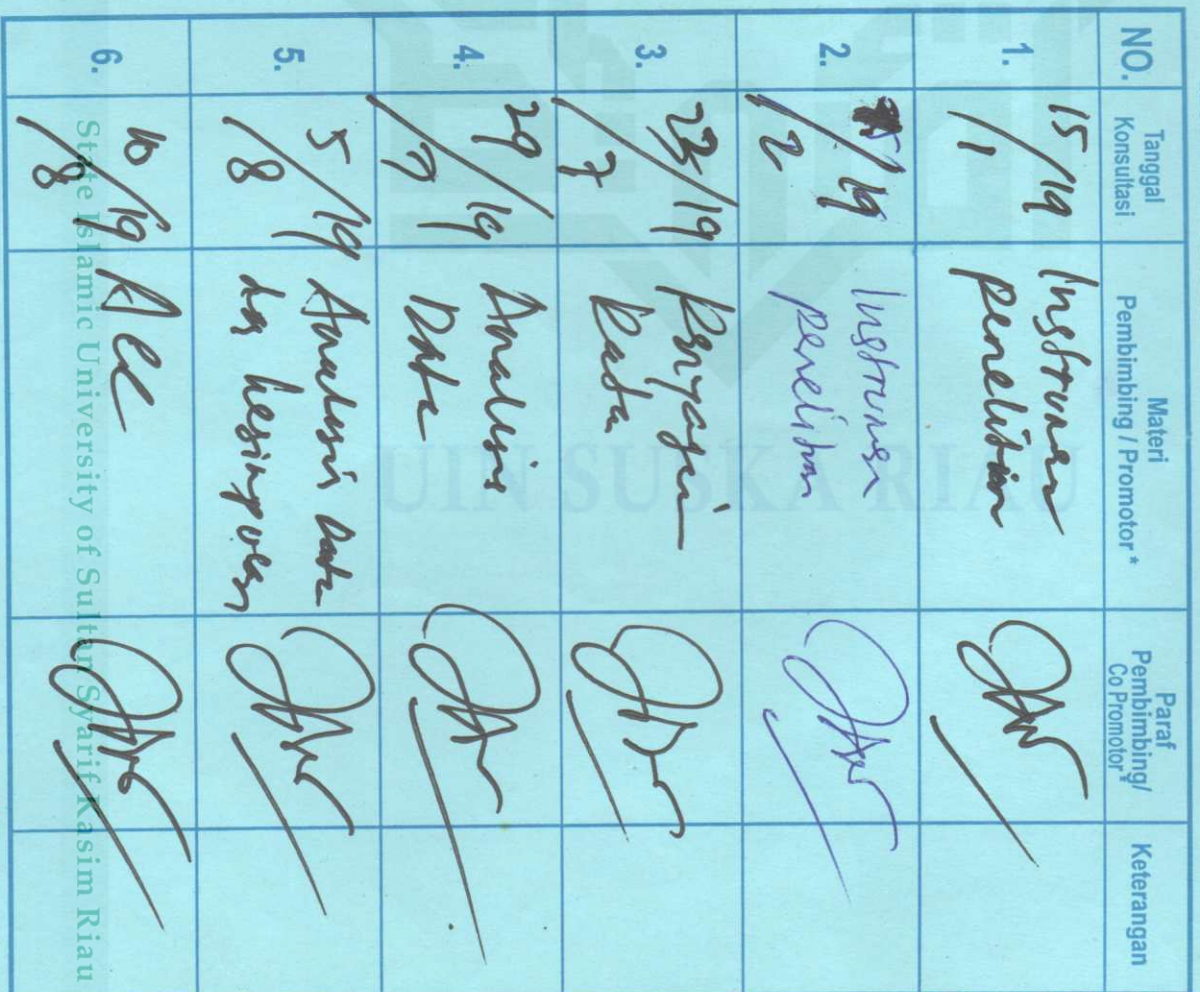 NO.
Tanggal
Konsultasi
Materi
Pembimbing / Promotor *
Paraf
Pembimbing/
Co Promotor*
Keterangan
1.
15/1/19
Instrumen
penelitian
2.
5/2/19
Instrumen
penelitian
3.
23/7/19
Penyajian
Data
4.
29/7/19
Analisis
Data
5.
5/8/19
Analisis Data
dan kesimpulan
6.
10/8/19
Acc
UIN SUSKA RIAU
State Islamic University of Sultan Syarif Kasim Riau